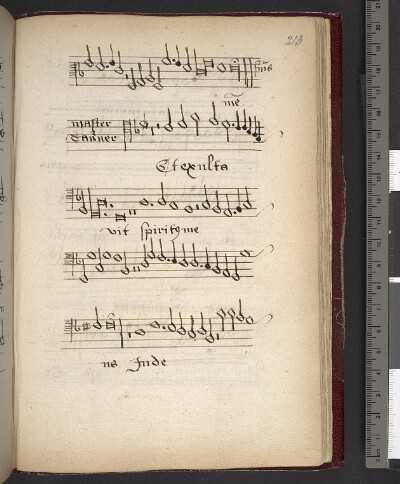 213
mē
master
Taũner
Et exulta
vit spiritꝰ me
us Inde